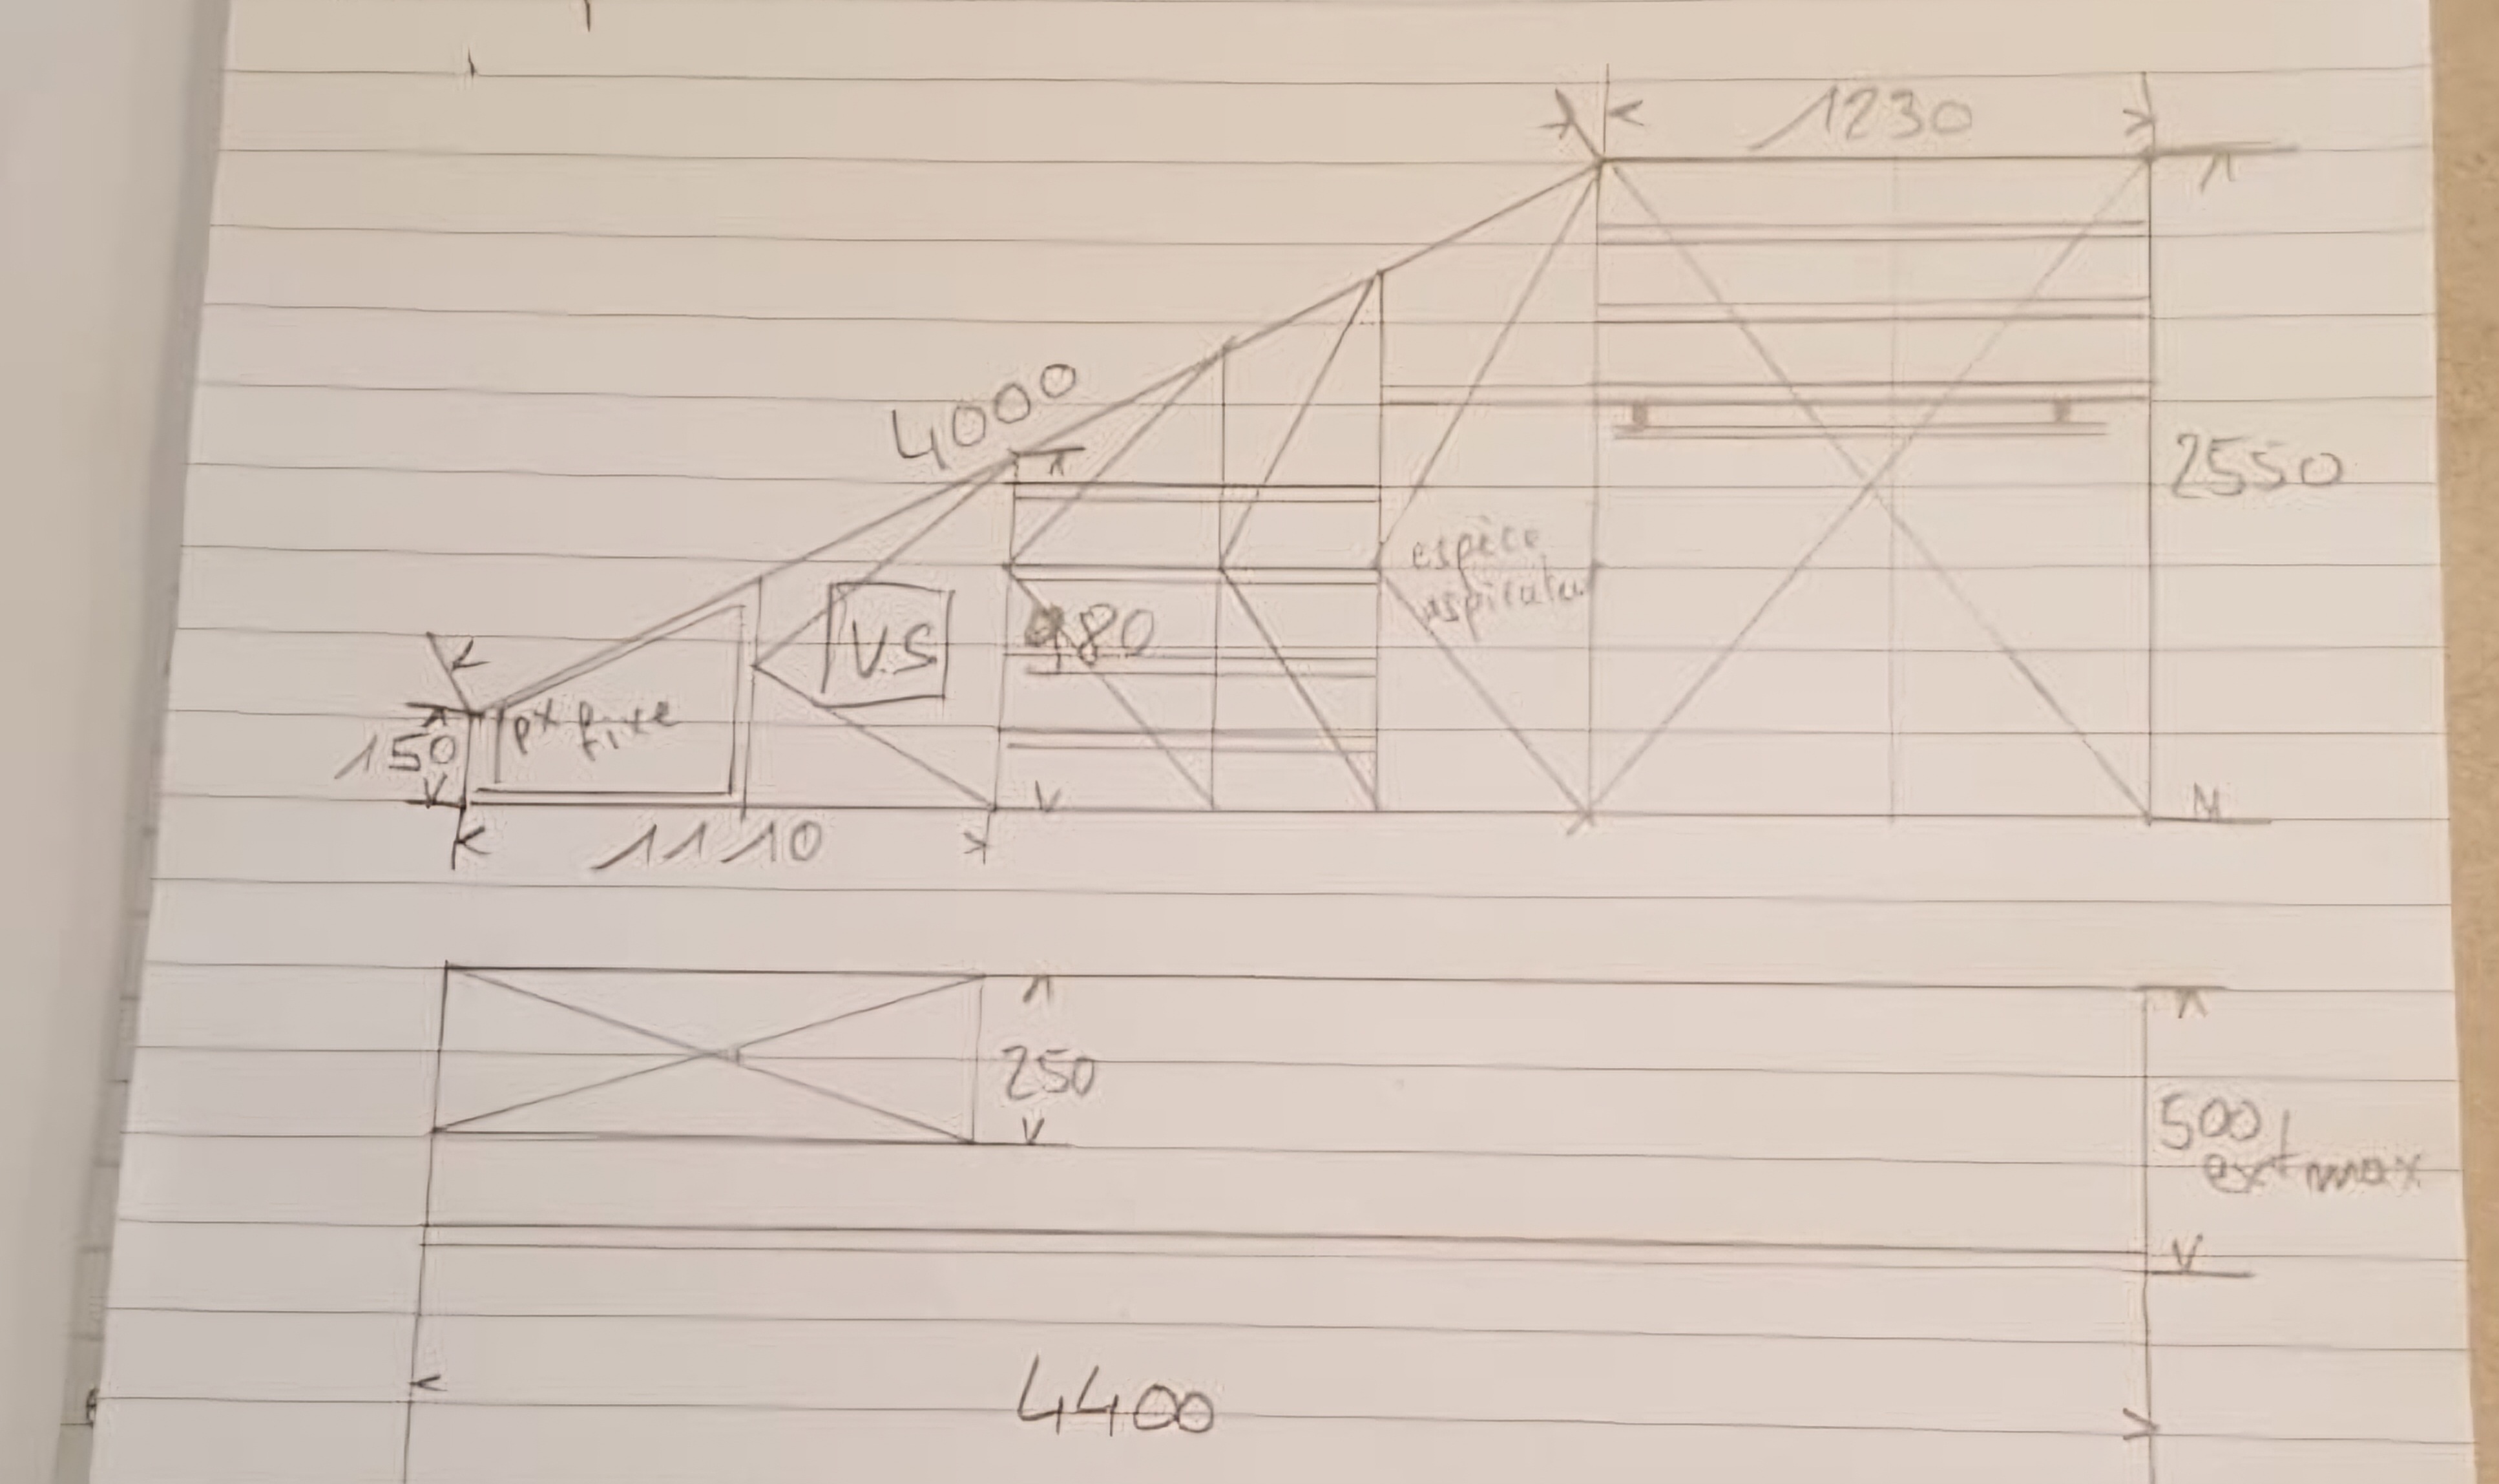 1230
4000
2550
espace
aspirateur
980
V.S
px fixe
150
1110
250
500
ext max
4400